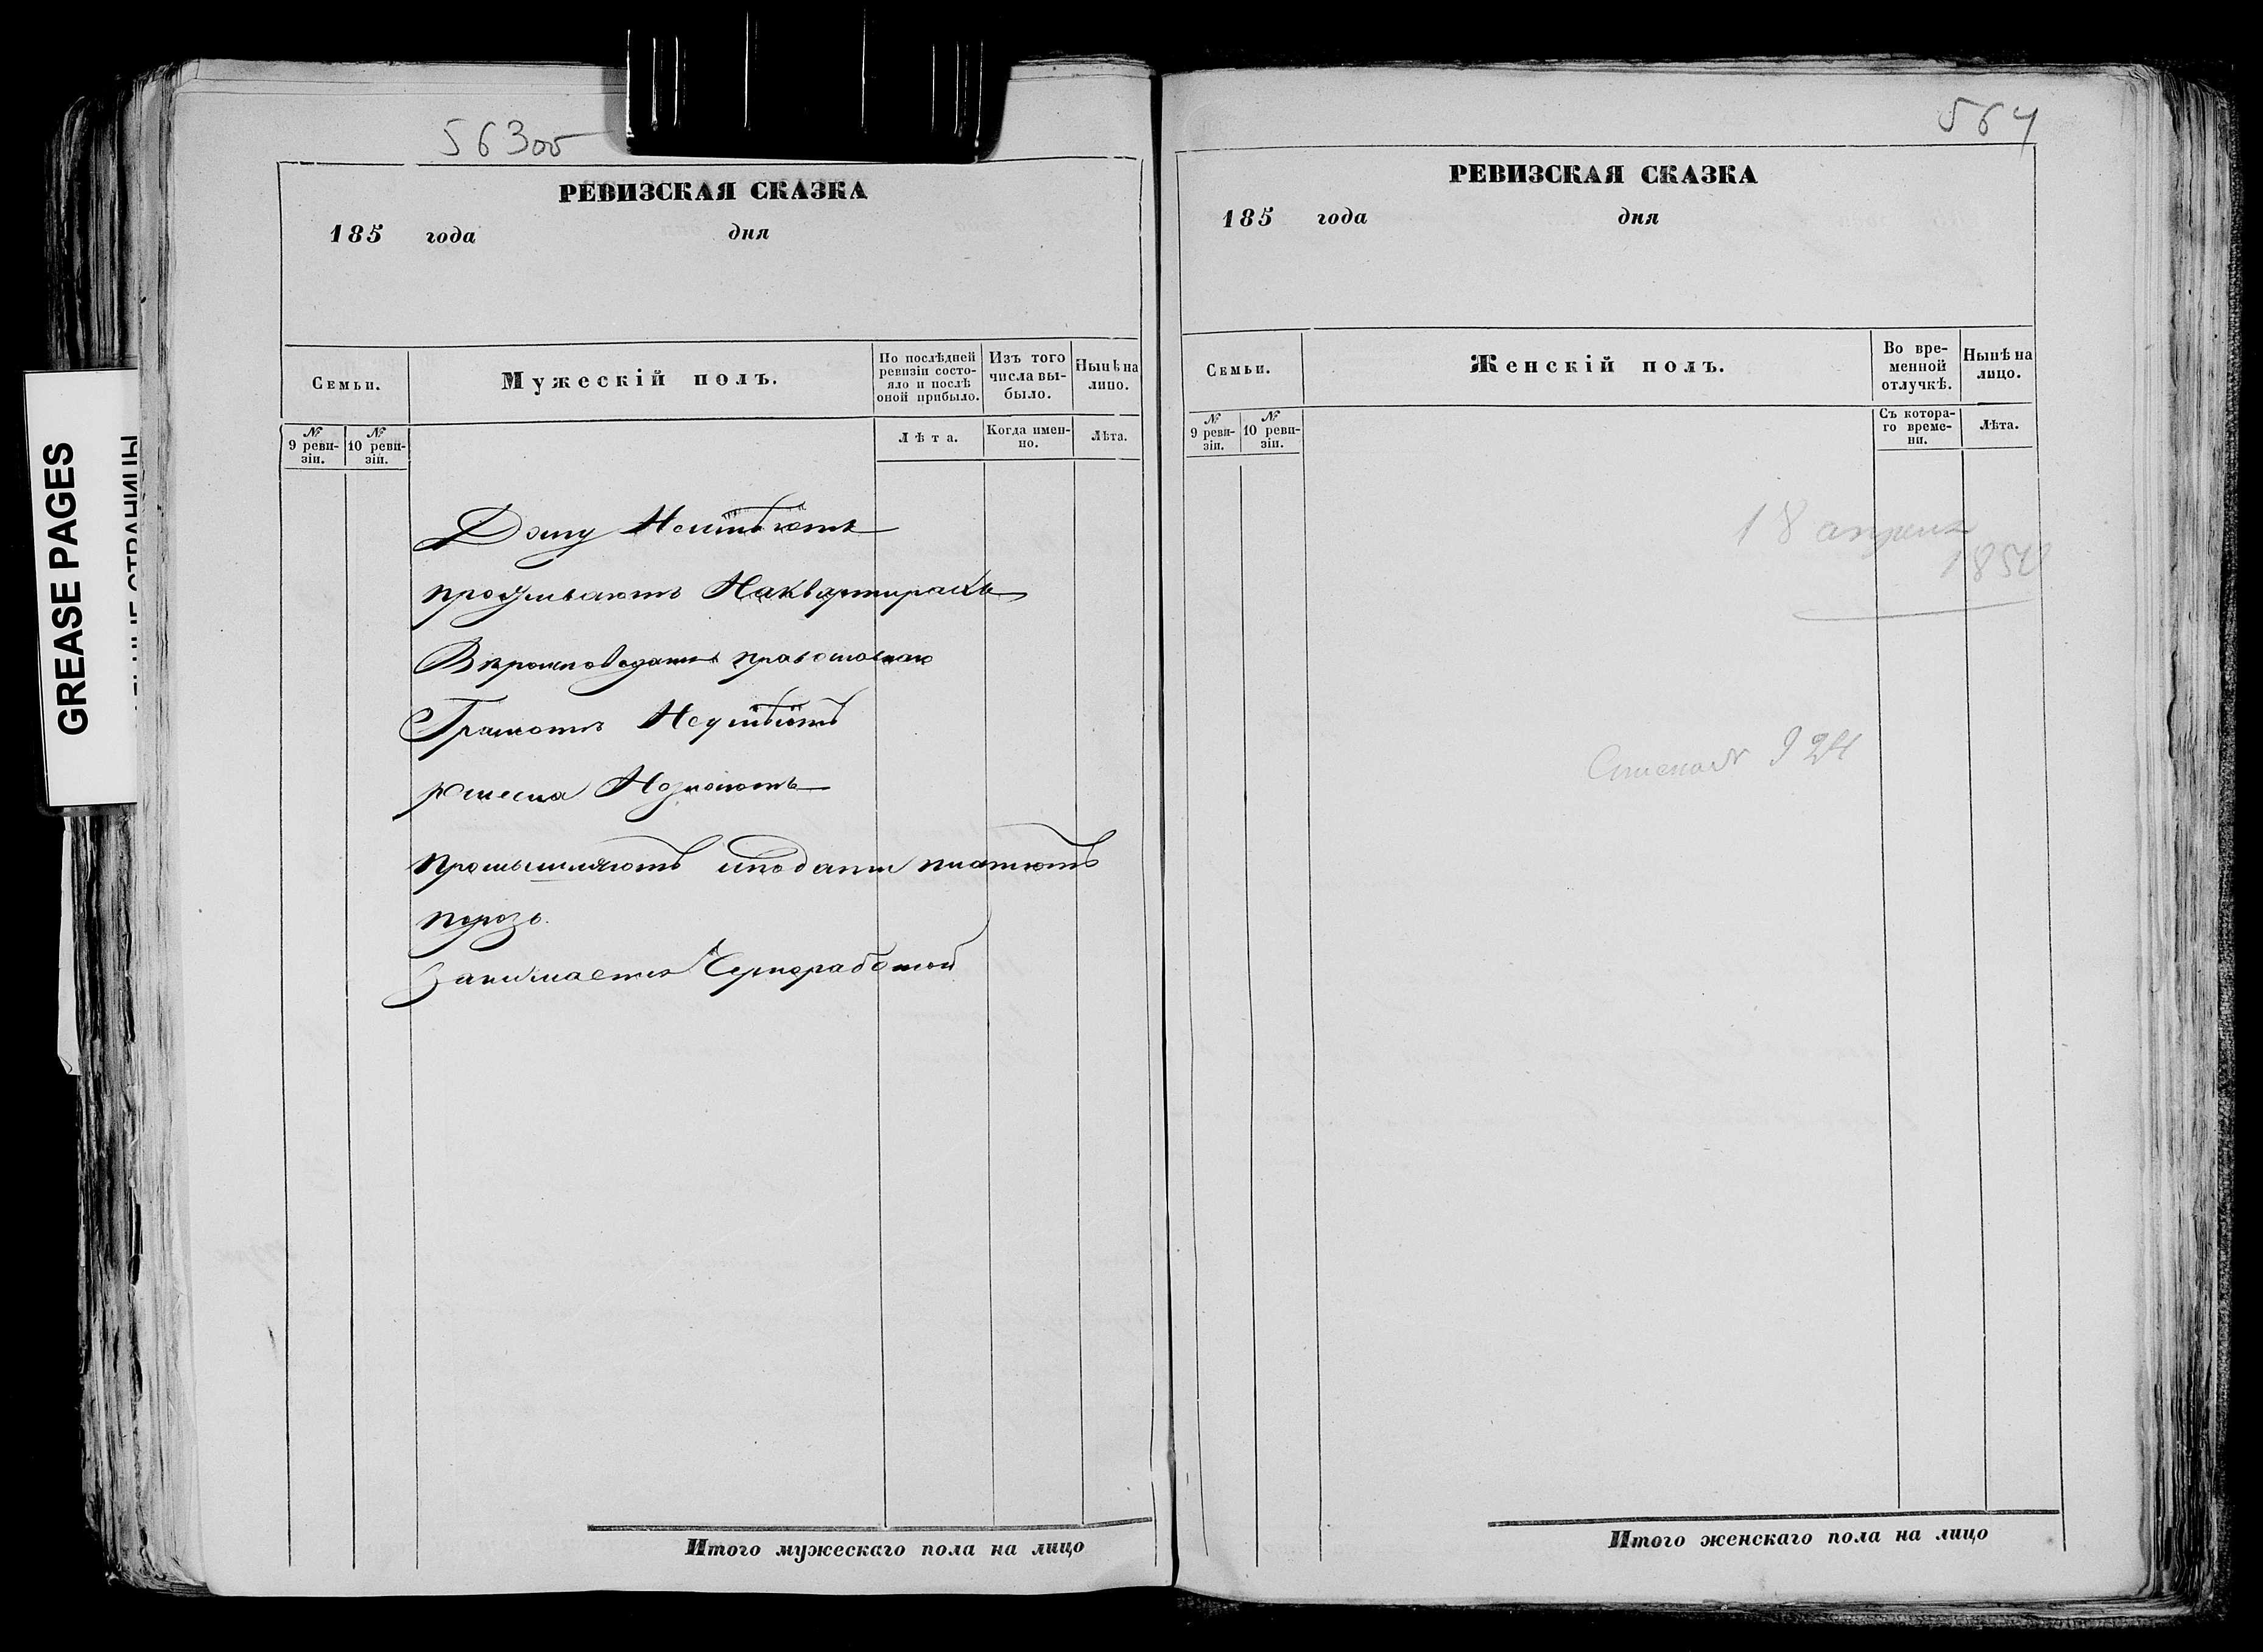 563об
РЕВИЗСКАЯ СКАЗКА
185 года дня
Семьи.
Мужескій полъ.
По послѣдней ревизіи состояло и послѣ оной прибыло.
Изъ того числа выбыло.
Нынѣ на лицо.
№ 9 ревизіи.
№ 10 ревизіи.
Лѣта.
Когда именно.
Лѣта.
Дому Неимѣютъ
проживаютъ Наквартирахъ
Вѣроисповеданія православнаго
Грамоте Неумѣютъ
Ремесла Незнаютъ
промышляютъ иподати платютъ
порозь.
Занимается Черноработой
Итого мужескаго пола на лицо
564
РЕВИЗСКАЯ СКАЗКА
185 года дня
Семьи.
Женскій полъ.
Во временной отлучкѣ.
Нынѣ на лицо.
№ 9 ревизіи.
№ 10 ревизіи.
Съ котораго времени.
Лѣта.
18 апреля
924
Итого женскаго пола на лицо
GREASE PAGES